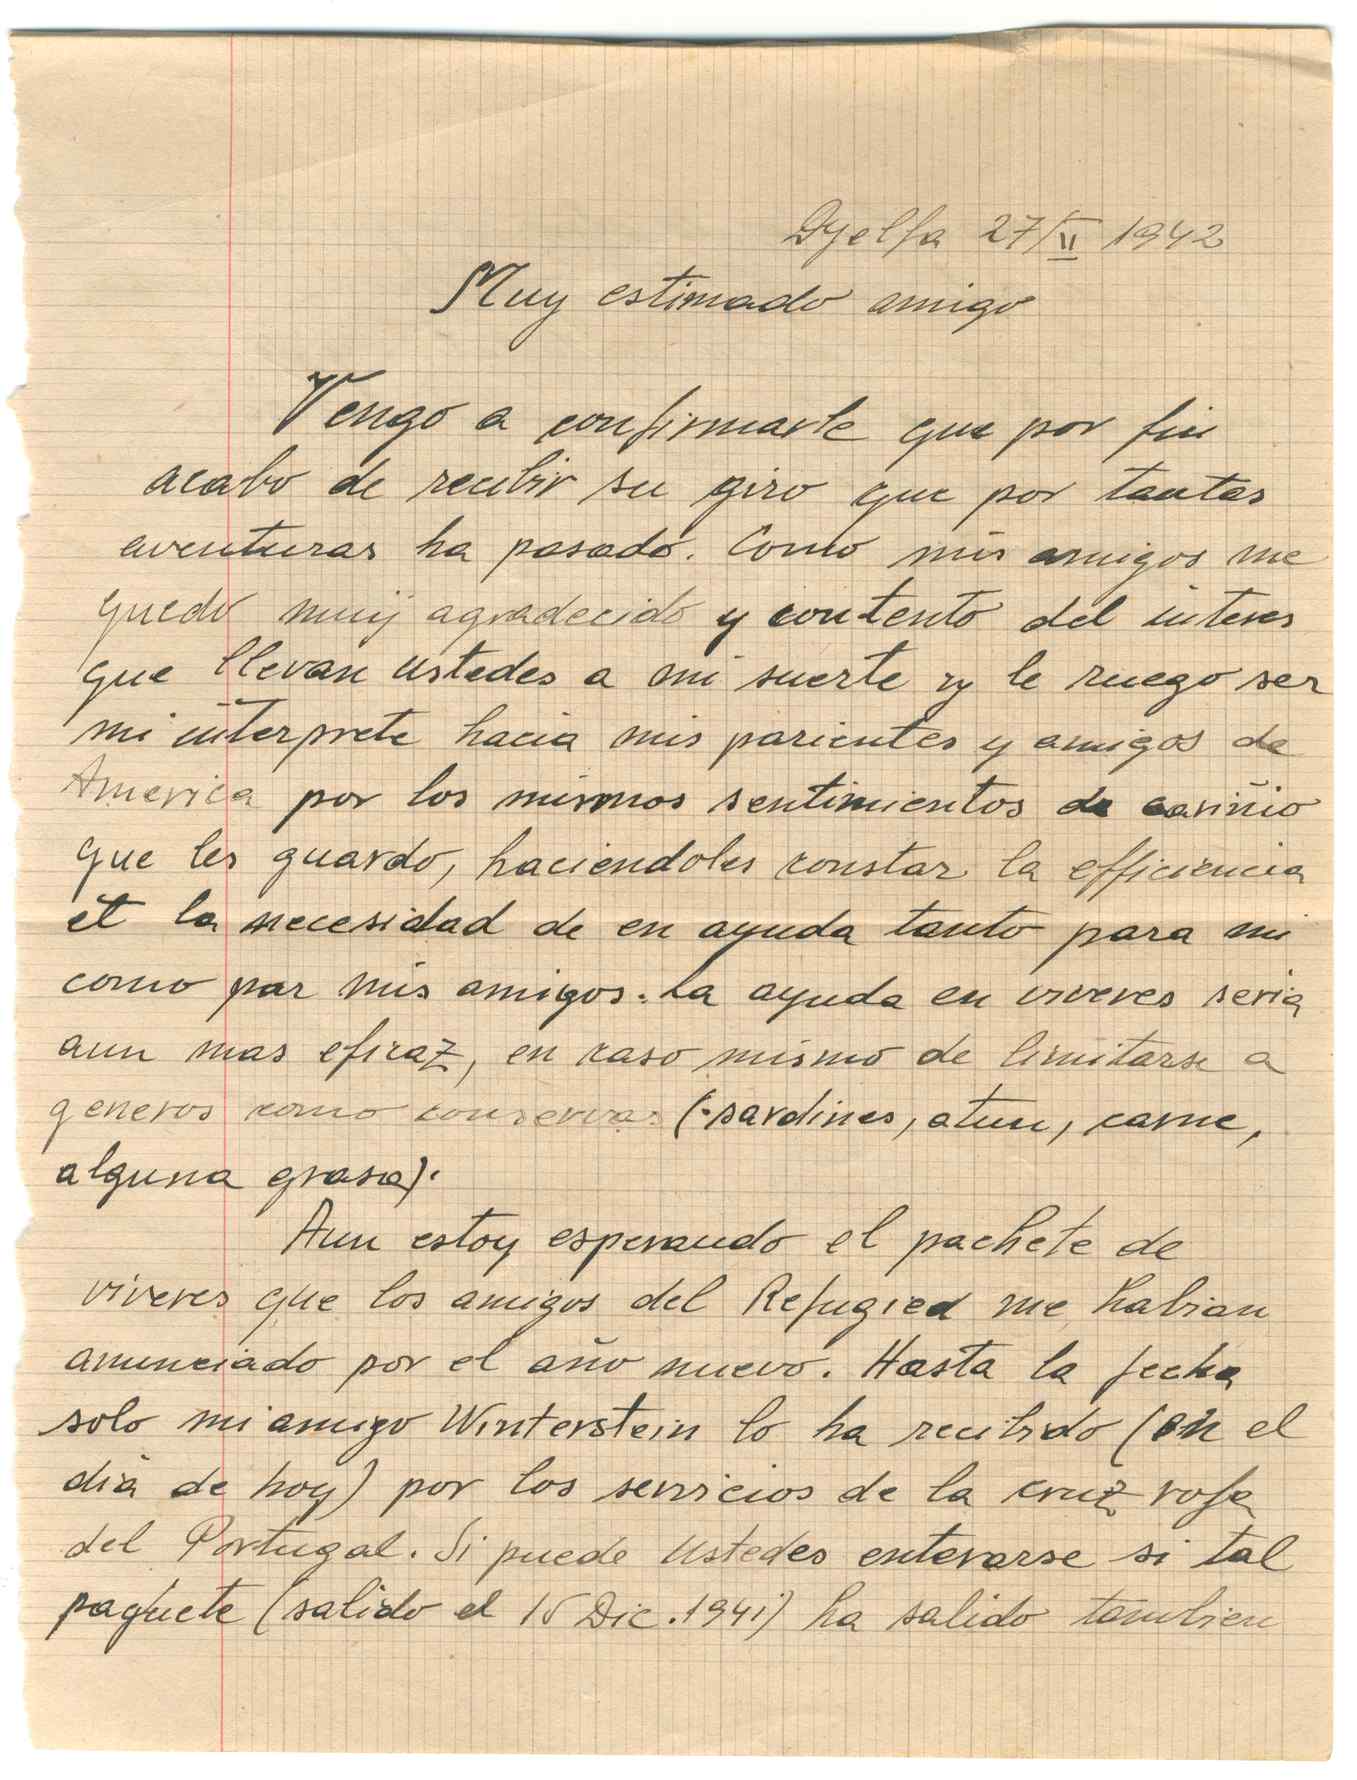 Djelfa 27/II 1942
Muy estimado amigo
Vengo a confirmarle que por fin
acabo de recibir su giro que por tantas
aventuras ha pasado. Como mis amigos me
quedo muy agradecido y contento del interes
que llevan ustedes a mi suerte y le ruego ser
mi interprete hacia mis parientes y amigos de
America por los mismos sentimientos de cariñio
que les guardo, haciendoles constar la efficiencia
et la necesidad de en ayuda tanto para mi
como par mis amigos. La ayuda en viveres seria
aun mas eficaz, en caso mismo de limitarse a
generos como conservas (sardines, atun, carne,
alguna grasa).
Aun estoy esperando el pachete de
viveres que los amigos del Refugied me habian
anunciado por el año nuevo. Hasta la fecha
solo mi amigo Winterstein lo ha recibido (en el
dia de hoy) por los servicios de la cruz roja
del Portugal. Si puede Ustedes enterarse si tal
paquete (salido el 15 Dic. 1941) ha salido tambien